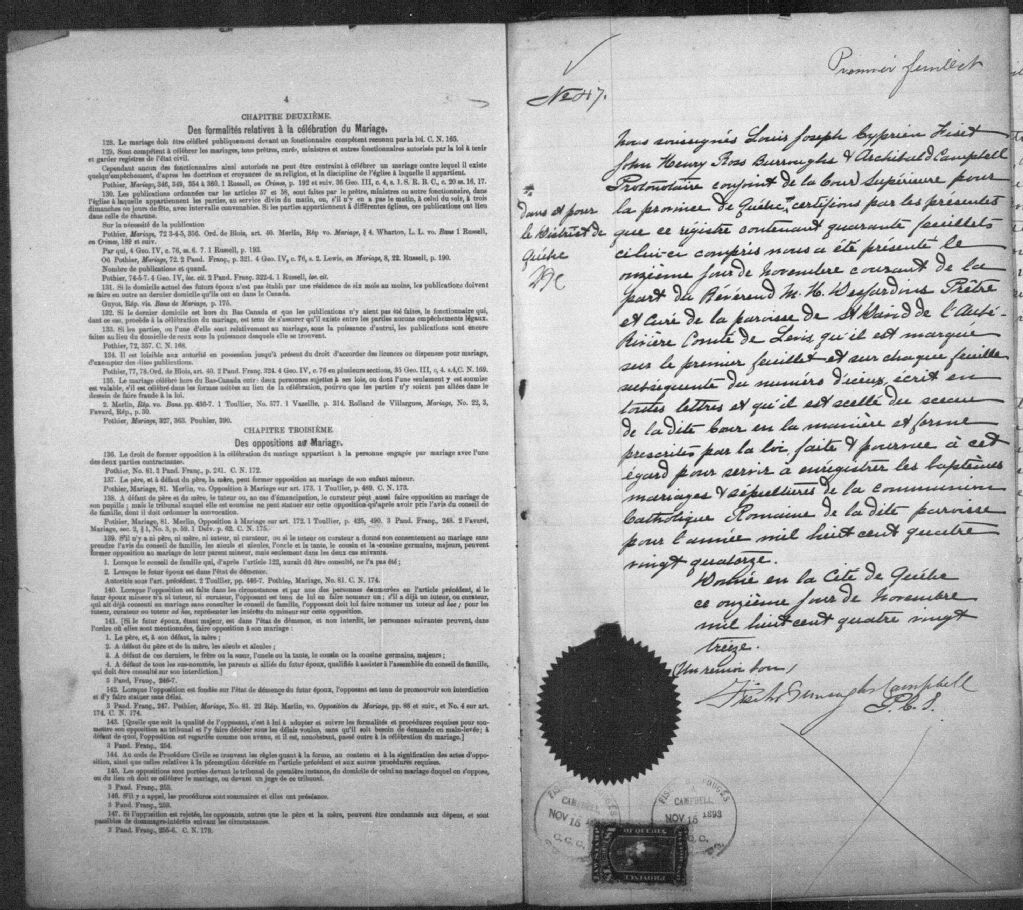 4
CHAPITRE DEUXIÈME.
Des formalités relatives à la célébration du Mariage.
128. Le mariage doit être célébré publiquement devant un fonctionnaire compétent reconnu par la loi. C. N. 165.
129. Sont compétent à célébrer les mariages, tous prêtres, curés, ministres et autres fonctionnaires autorisés par la loi à tenir
et garder registres de l'état civil.
Cependant aucun des fonctionnaires ainsi autorisés ne peut être contraint à célébrer un mariage contre lequel il existe
quelqu'empêchement, d'après les doctrines et croyances de sa religion, et la discipline de l'église à laquelle il appartient.
Pothier, Mariage, 346, 349, 354 à 360. 1 Russell, on Crimes, p. 192 et suiv. 35 Geo. III, c. 4, s. 1. S. R. B. C., c. 20 ss. 16, 17.
130. Les publications ordonnées par les articles 57 et 58, sont faites par le prêtre, ministre ou autre fonctionnaire, dans
l'église à laquelle appartiennent les parties, au service divin du matin, ou, s'il n'y en a pas le matin, à celui du soir, à trois
dimanches ou jours de fête, avec intervalle convenables. Si les parties appartiennent à différentes églises, ces publications ont lieu
dans celle de chacune.
Sur la nécessité de la publication
Pothier, Mariage, 72 3-4-5, 356. Ord. de Blois, art. 40. Merlin, Rép vo. Mariage, § 4. Wharton, L. L. vo. Bans 1 Russell,
en Crimes, 182 et suiv.
Par qui, 4 Geo. IV, c. 76, ss. 6. 7. 1 Russell, p. 193.
Où Pothier, Mariage, 72. 2 Pand. Franç., p. 321. 4 Geo. IV, c. 76, s. 2. Lewis, on Mariage, 8, 22. Russell, p. 190.
Nombre de publications et quand.
Pothier, 74-5-7. 4 Geo. IV, loc. cit. 2 Pand. Franç. 322-4. 1 Russell, loc. cit.
131. Si le domicile actuel des futurs époux n'est pas établi par une résidence de six mois au moins, les publications doivent
se faire en outre au dernier domicile qu'ils ont eu dans le Canada.
Guyot, Rép. vis. Bans de Mariage, p. 175.
132. Si le dernier domicile est hors du Bas Canada et que les publications n'y aient pas été faites, le fonctionnaire qui,
dans ce cas, procède à la célébration du mariage, est tenu de s'assurer qu'il n'existe entre les parties aucuns empêchements légaux.
133. Si les parties, ou l'une d'elles sont relativement au mariage, sous la puissance d'autrui, les publications sont encore
faites au lieu du domicile de ceux sous la puissance desquels elles se trouvent.
Pothier, 72, 357. C. N. 168.
134. Il est loisible aux autorité en possession jusqu'à présent du droit d'accorder des licences ou dispenses pour mariage,
d'exempter des dites publications.
Pothier, 77, 78. Ord. de Blois, art. 40. 2 Pand. Franç. 324. 4 Geo. IV, c. 76 en plusieurs sections, 35 Geo. III, c. 4. s.4, C. N. 169.
135. Le mariage célébré hors du Bas-Canada entre deux personnes sujettes à ses lois, ou dont l'une seulement y est soumise
est valable, s'il est célébré dans les formes usitées au lieu de la célébration, pourvu que les parties n'y soient pas allées dans le
dessein de faire fraude à la loi.
2. Merlin, Rép. vo. Bans, pp. 456-7. 1 Toullier, No. 577. 1 Vazeille, p. 314. Rolland de Villargues, Mariage, No. 22, 3,
Favard, Rép., p. 59.
Pothier, Mariage, 327, 363. Pouhier, 390.
CHAPITRE TROISIÈME.
Des oppositions au Mariage.
136. Le droit de former opposition à la célébration du mariage appartient à la personne engagée par mariage avec l'une
des deux parties contractantes.
Pothier, No. 81. 3 Pand. Franç., p. 241. C. N. 172.
137. Le père, et à défaut du père, la mère, peut former opposition au mariage de son enfant mineur.
Pothier, Mariage, 81. Merlin, vo. Opposition à Mariage sur art. 173. 1 Toullier, p. 489. C. N. 173.
138. A défaut de père et de mère, le tuteur ou, au cas d'émancipation, le curateur peut aussi faire opposition au mariage de
son pupille; mais le tribunal auquel elle est soumise ne peut statuer sur cette opposition qu'après avoir pris l'avis du conseil
de famille, dont il doit ordonner la convocation.
Pothier, Mariage, 81. Merlin, Opposition à Mariage sur art. 172. 1 Toullier, p. 425, 490. 3 Pand. Franç., 248. 2 Favard,
Mariage, sec. 2, § 1, No. 3, p. 59. 1 Delv. p. 62. C. N. 175.
139. S'il n'y a ni père, ni mère, ni tuteur, ni curateur, ou si le tuteur ou curateur a donné son consentement au mariage sans
prendre l'avis du conseil de famille, les aïeuls et aïeules, l'oncle et la tante, le cousin et la cousine germains, majeurs, peuvent
former opposition au mariage de leur parent mineur, mais seulement dans les deux cas suivants.
1. Lorsque le conseil de famille qui, d'après l'article 122, aurait dû être consulté, ne l'a pas été;
2. Lorsque le futur époux est dans l'état de démence.
Autorités sous l'art. précédent. 2 Toullier, pp. 446-7. Pothier, Mariage, No. 81. C. N. 174.
140. Lorsque l'opposition est faite dans les circonstances et par une des personnes énumérées en l'article précédent, si le
futur époux mineur n'a ni tuteur, ni curateur, l'opposant est tenu de lui en faire nommer un; s'il a déjà un tuteur, ou curateur,
qui ait déjà consenti au mariage sans consulter le conseil de famille, l'opposant doit lui faire nommer un tuteur ad hoc; pour les
tuteur, curateur ou tuteur ad hoc, représenter les intérêts du mineur sur cette opposition.
141. [Si le futur époux, étant majeur, est dans l'état de démence, et non interdit, les personnes suivantes peuvent, dans
l'ordre où elles sont mentionnées, faire opposition à son mariage:
1. Le père, et, à son défaut, la mère;
2. A défaut du père et de la mère, les aïeuls et aïeules;
3. A défaut de ces derniers, le frère ou la sœur, l'oncle ou la tante, le cousin ou la cousine germains, majeurs;
4. A défaut de tous les sus-nommés, les parents et alliés du futur époux, qualifiés à assister à l'assemblée du conseil de famille,
qui doit être consulté sur son interdiction.]
3 Pand. Franç., 246-7.
142. Lorsque l'opposition est fondée sur l'état de démence du futur époux, l'opposant est tenu de promouvoir son interdiction
et d'y faire statuer sans délai.
3 Pand. Franç., 247. Pothier, Mariage, No. 81. 22 Rép. Merlin, vo. Opposition du Mariage, pp. 88 et suiv., et No. 4 sur art.
174. C. N. 174.
143. [Quelle que soit la qualité de l'opposant, c'est à lui à adopter et suivre les formalités et procédures requises pour sou-
mettre son opposition au tribunal et l'y faire décider sous les délais voulus, sans qu'il soit besoin de demande en main-levée; à
défaut de quoi, l'opposition est regardée comme non avenue, et il est, nonobstant, passé outre à la célébration du mariage.]
3 Pand. Franç., 254.
144. Au code de Procédure Civile se trouvent les règles quant à la forme, au contenu et à la signification des actes d'oppo-
sition, ainsi que celles relatives à la péremption décrétée en l'article précédent et aux autres procédures requises.
145. Les oppositions sont portées devant le tribunal de première instance, du domicile de celui au mariage duquel on s'oppose,
ou du lieu où doit se célébrer le mariage, ou devant un juge de ce tribunal.
3 Pand. Franç., 255.
146. S'il y a appel, les procédures sont sommaires et elles ont préséance.
3 Pand. Franç., 258.
147. Si l'opposition est rejetée, les opposants, autres que le père et la mère, peuvent être condamnés aux dépens, et sont
passibles de dommages-intérêts suivant les circonstances.
3 Pand. Franç., 255-6. C. N. 179.
Premier feuillet
No 47.
Nous soussignés Louis Joseph Cyprien Fiset
John Henry Ross Burroughs & Archibald Campbell
Protonotaire conjoint de la Cour Supérieure pour
la province de Québec, certifions par les présentes
dans et pour
le District de
Québec
que ce registre contenant quarante feuillets
celui-ci compris nous a été présenté le
onzième jour de Novembre courant de la
part du Révérend M. H. Desjardins Prêtre
et Curé de la paroisse de St David de l'Aubé-
Rivière Comté de Lévis, qu'il est marqué
sur le premier feuillet et sur chaque feuille
subséquente du numéro d'iceux, écrit en
toutes lettres et qu'il est scellé du sceau
de la dite Cour en la manière et forme
prescrites par la loi, faite & pourvue à cet
égard pour servir à enregistrer les baptêmes
mariages & sépultures de la communion
Catholique Romaine de la dite paroisse
pour l'année mil huit cent quatre
vingt quatorze.
Donné en la Cité de Québec
ce onzième jour de Novembre
mil huit cent quatre vingt
treize.
(Un renvoi bon)
Fiset Burroughs Campbell
P. C. S.
CAMPBELL
NOV 15
C.C.C.
CAMPBELL
NOV 15 1893
PROVINCE